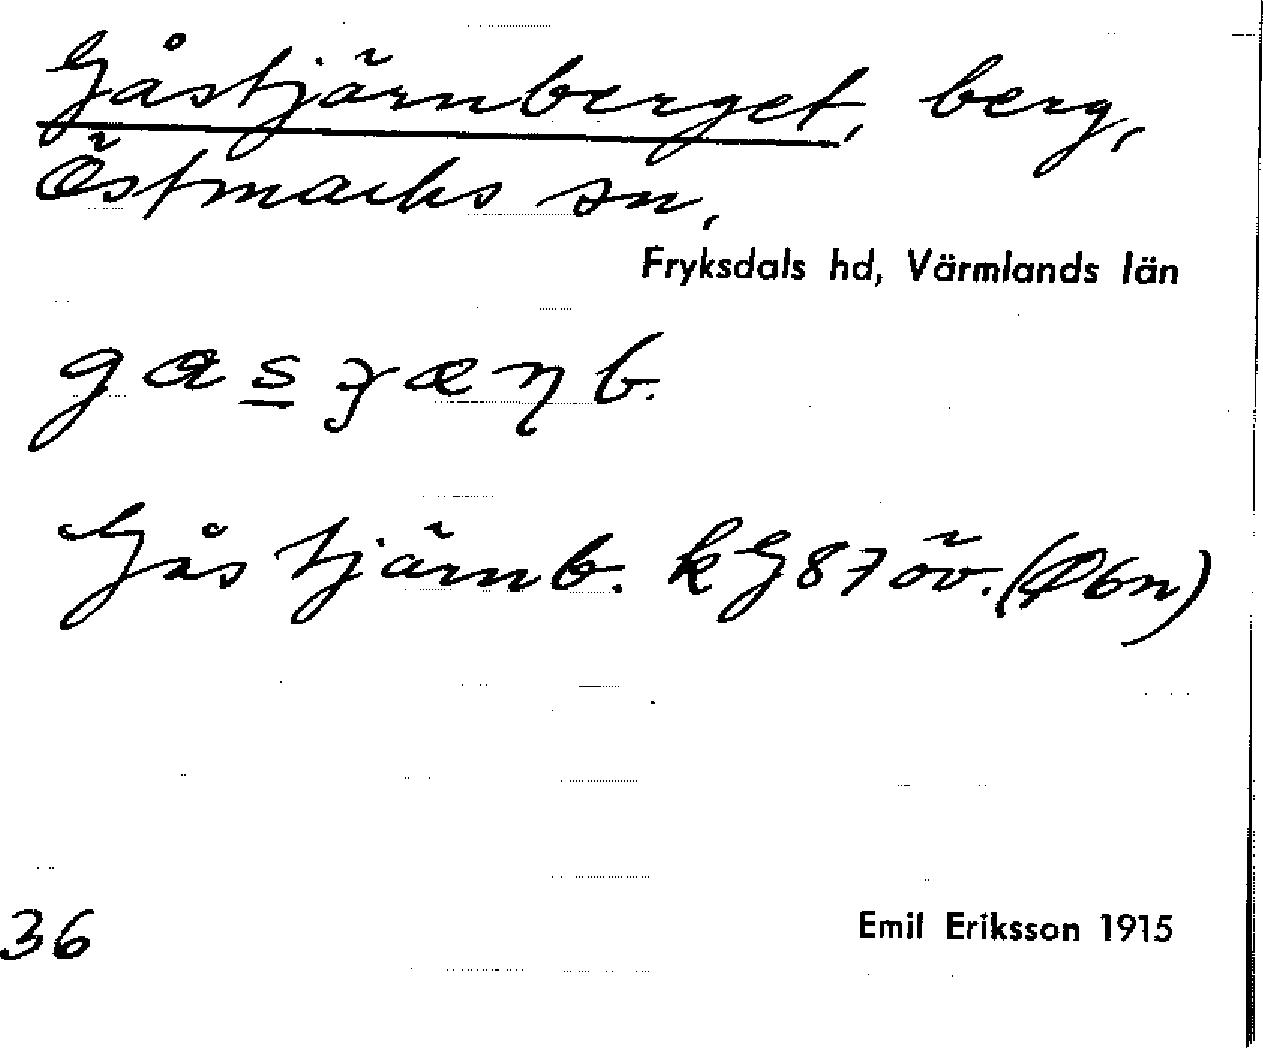 Gåstjärnberget, berg,
Östmarks sn,
Fryksdals hd, Värmlands län
Gåstjärnb. kG87öv.
36
Emil Eriksson 1915